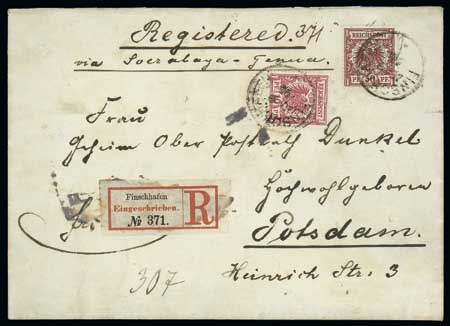 Registered. 371
via Soerabaya-Genua.
REICHSPOST
Frau
Geheim Ober Postrath Dunkel
Hochwohlgeboren
Finschhafen
Eingeschrieben.
№ 371.
R
Potsdam.
Heinrich Str: 3
307